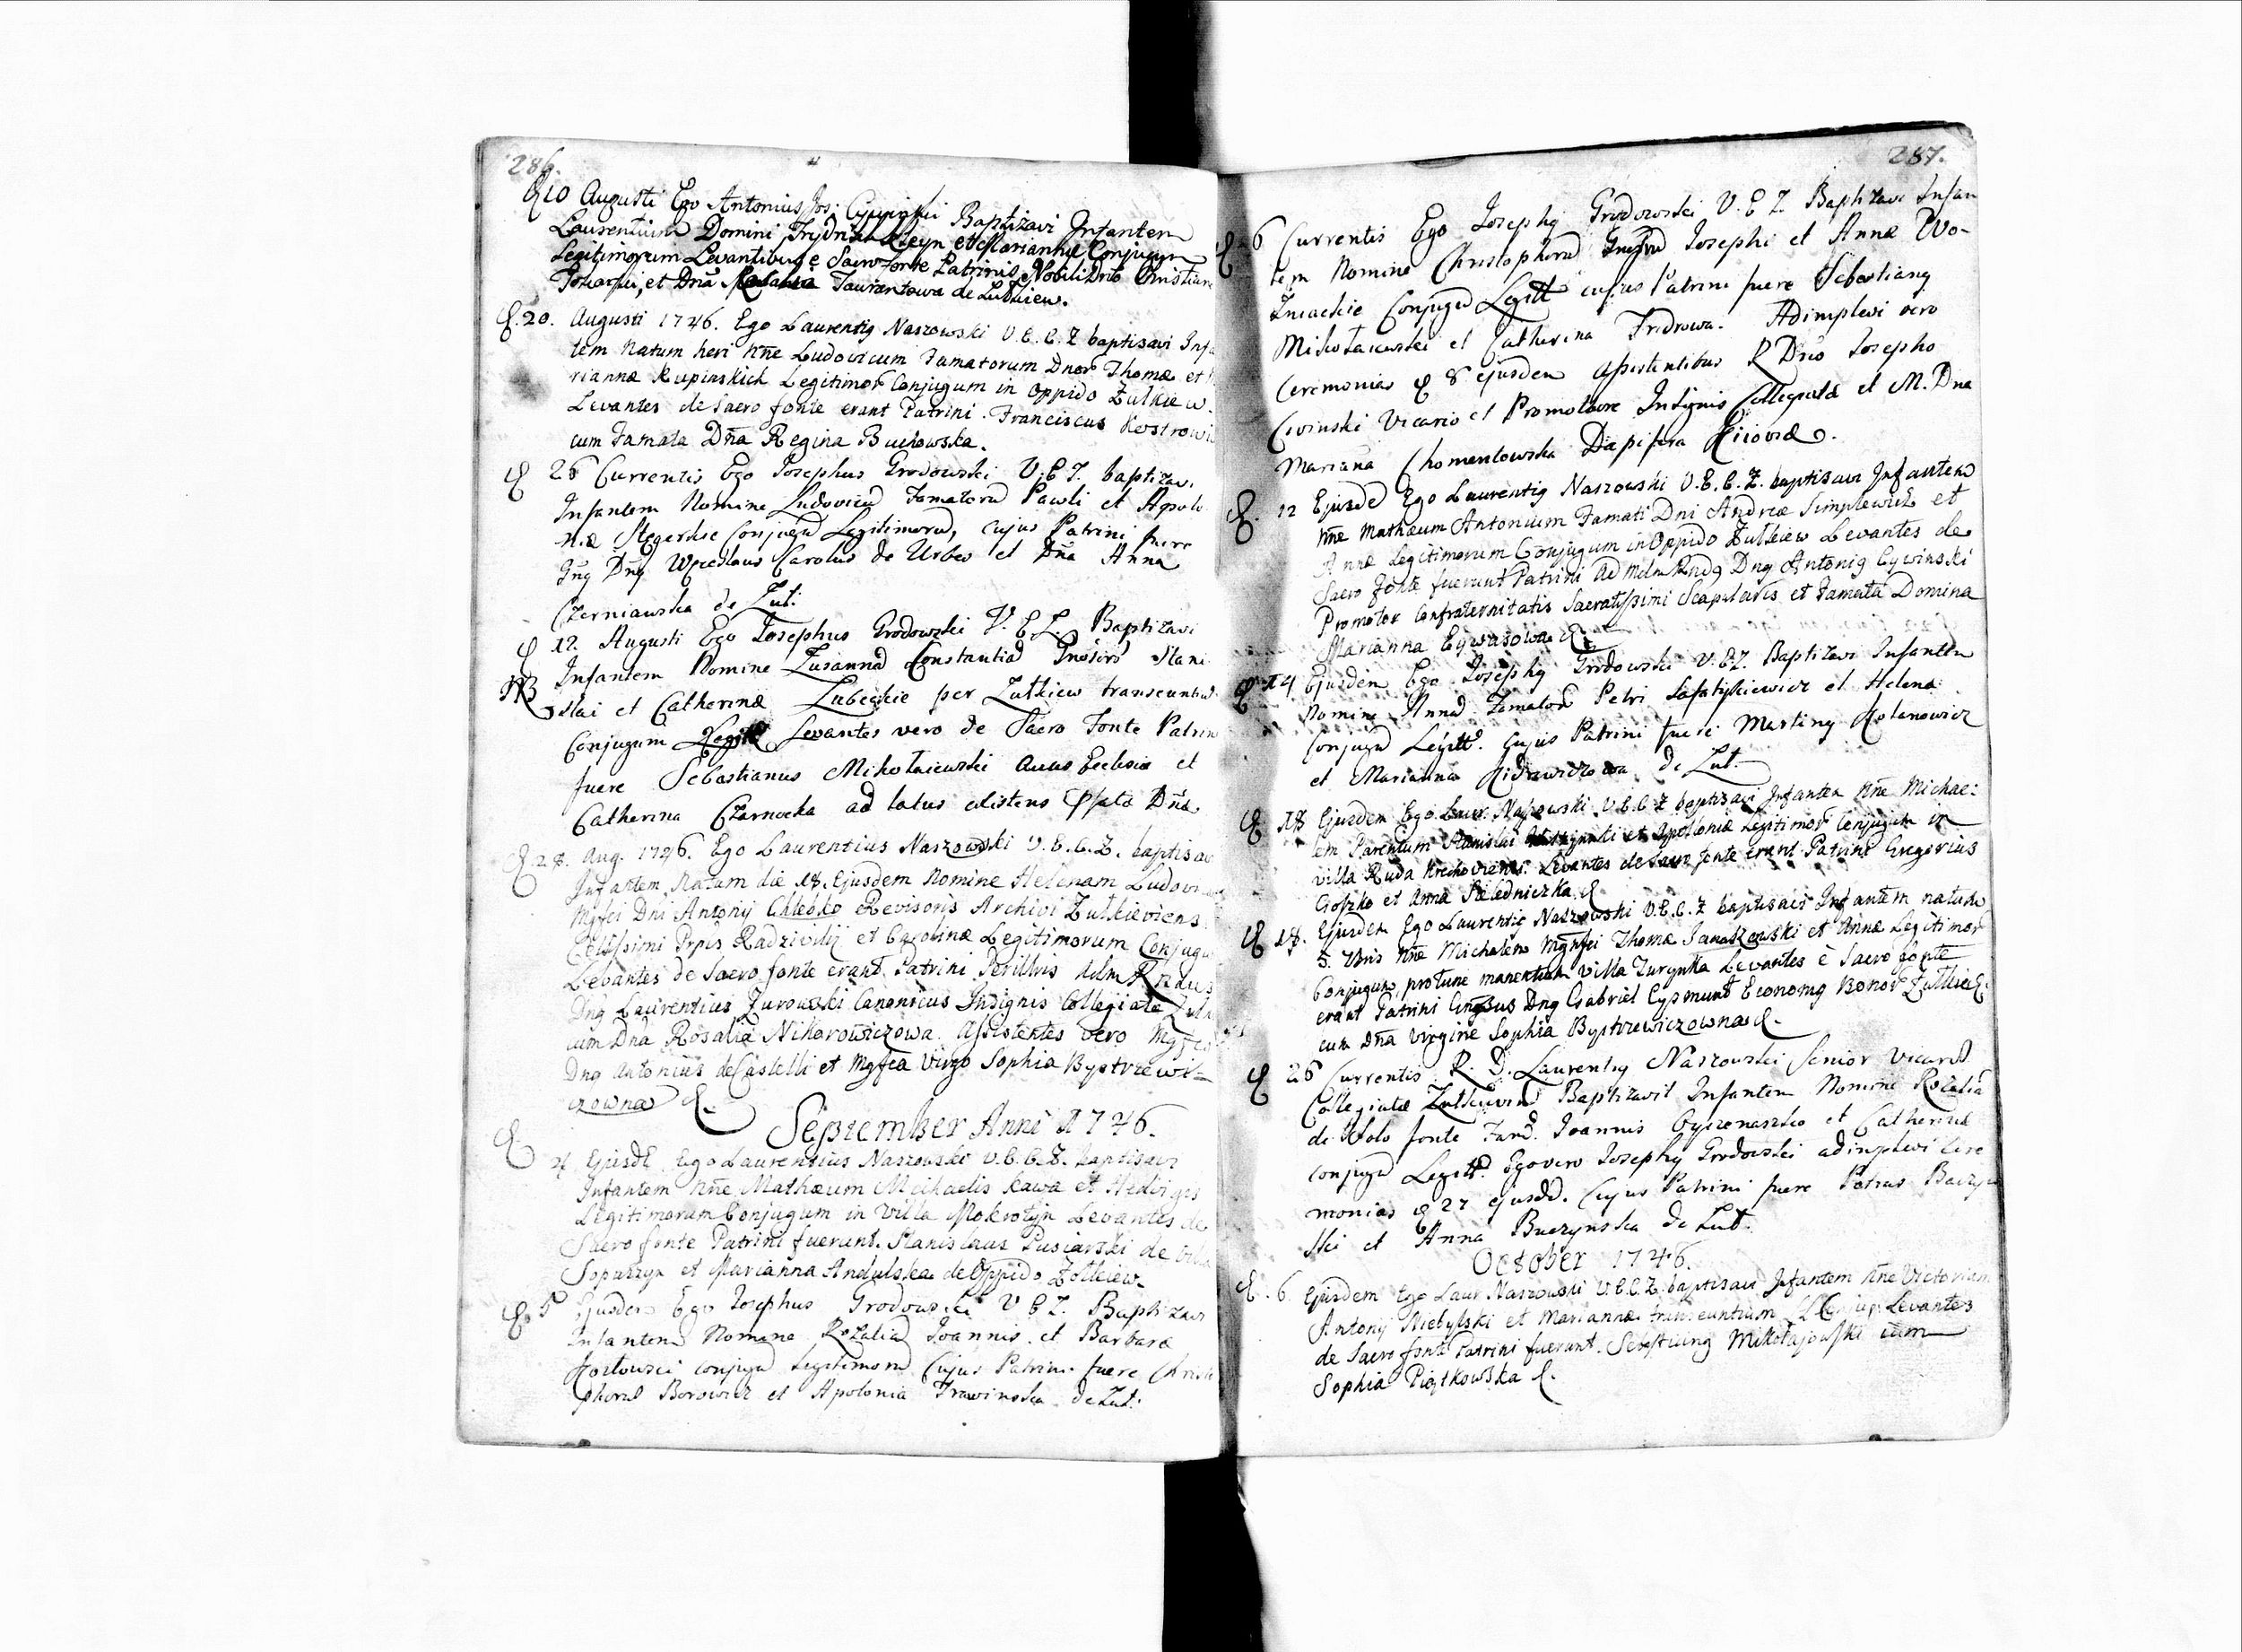 286.
10 Augusti Ego Antonius Jos: Cywiński Baptizavi Infantem
Laurentium Domini Frydrich Kleyn et Mariannæ Conjugum
Legitimorum Levantibus e Sacro fonte Patrinis Nobili Dno Christiano
et Dna Tauzantowa de Zulkiew.
20. Augusti 1746. Ego Laurentig Naszowski V.E.C.Z baptisavi Infa
tem natum heri nne Ludovicum Famatorum Dnor Thomæ et
riannæ Rupinskich Legitimor Conjugum in Oppido Zulkiew.
Levantes de Sacro fonte erant Patrini. Franciscus Kostrowi
cum Famata Dna Regina Buchowska.
26 Currentis Ego Josephus Grodowski V.E.Z. baptizavi
Infantem Nomine Ludovicu Famatoru Pawli et Apolo
niæ Conjugu Legitimoru, cujus Patrini fuere
Gng Dng Carolus de Urbeo et Dna Anna
Czerniawska de Zul:
12. Augusti Ego Josephus Grodowski V.E.Z. Baptizavi
Infantem Nomine Zusanna Constantia Gnosoro Stani
NB slai et Catherinæ Lubeckie per Zulkiew transeuntiu
Conjugum Legitt Levantes vero de Sacro Fonte Patrin
fuere Sebastianus Mikołaiewski Ecclesiæ et
Catherina Czarnocka ad latus existens Dna
28. Aug. 1746. Ego Laurentius Naszowski V.E.C.Z. baptisav
Infantem Natam die 18. Ejusdem Nomine Helenam Ludovi
Mgfci Dni Antonij Chlebko Revisoris Archivi Zulkieviens
Celsissimi Prpis Radzivilij et Carolinæ Legitimorum Conjugu
Levantes de Sacro fonte erant. Patrini Perillris Adm Rndus
Dng Laurentius Zurowski Canonicus Insignis Collegiatæ Zulk
cum Dna Rosalia Nikorowiczowa. Assistentes vero Mgfcus
Dng Antonius de Castelli et Mgfca Virgo Sophia Bystrzewi-
czowna
September Anni 1746.
4 Ejusde Ego Laurentius Naszowski V.E.C.Z. baptisavi
Infantem nne Mathæum Michaelis Kawa et Hedvigis
Legitimorum Conjugum in Villa Mokrotyn Levantes de
Sacro fonte Patrini fuerunt. Stanislaus Pusiarski de villa
Sopuszyn et Marianna Andulska de Oppido Zolkiew
5 Ejusdem Ego Josephus Grodowski V E Z. Baptizavi
Infantem Nomine Rozalia Joannis et Barbaræ
Kozłowsci conjugu Legitimoru Cujus Patrini fuere Christo
phorus Borowicz et Apolonia Trawinska de Zul:
287.
6 Currentis Ego Josephg Grodowski V. E Z. Baptizavi Infan
tem Nomine Christophoru Josephi et Annæ Wo-
Conjugu Legitt cujus Patrini fuere Sebastiang
Mikołaiewski et Catherina Fridrowa. Adimplevi vero
Ceremonias 8 ejusdem assistentibus R Dno Josepho
Civinski Vicario et Promotore Insignis Collegiatæ et M. Dna
Mariana Chomentowska Dapifera Kiioviæ.
12 Ejusde Ego Laurentig Naszowski V.E.C.Z. baptisavi Infantem
nne Mathæum Antonium Famati Dni Andreæ Simplewicz et
Annæ Legitimorum Conjugum in Oppido Zulkiew Levantes de
Sacro fonte fuerunt Patrini Adm Rndg Dng Antonig Cywinski
Promotor Confraternitatis Sacratissimi Scapularis et Famata Domina
Marianna
14 Ejusdem Ego Josephg Grodowski V.E.Z. Baptizavi Infantem
Nomine Anna Famator Petri Safatykiewicz et Helena
Conjugu Legitt. Cujus Patrini fuere Marting Kolanowicz
et Marianna de Zul.
18 Ejusdem Ego Laur. Naszowski V.E.C.Z baptisavi Infantem nne Michae:
em Parentum Stanislai et Apolloniæ Legitimor Conjugum in
villa Ruda Krechoviens. Levantes de Sacro fonte erant Patrini Gregorius
et Anna Siledniczka
18. Ejusdem Ego Laurentig Naszowski V.E.C.Z baptisavi Infantem natum
5. 7bris nne Michalem Mgnfci Thomæ Janaszowski et Annæ Legitimor
Conjugum protunc manentium villa Turynka Levantes è Sacro fonte
erant Patrini Gnosus Dng Gabriel Cypmunt Economg Bonor Zulkie
cum Dna Virgine Sophia Bystrzewiczowna
26 Currentis R. D. Laurentig Naszowski Senior Vicarius
Collegiatæ Zulkievien Baptizavit Infantem Nomine Rozalia
de Solo fonte Fam. Joannis et Catherinæ
conjugu Legitt. Ego vero Josephg Grodowski adimplevi Cere
monias 27 ejusdd. Cujus Patrini fuere Petrus Buczyn
ski et Anna Buczynska de Zul.
October 1746.
6. Ejusdem Ego Laur Naszowski V.E.C.Z baptisavi Infantem nne Victoriam
Antonij Niebylski et Mariannæ transeuntium Conjug. Levantes
de Sacro fonte Patrini fuerunt. Sebastiang Mikołajowski cum
Sophia Piątkowska